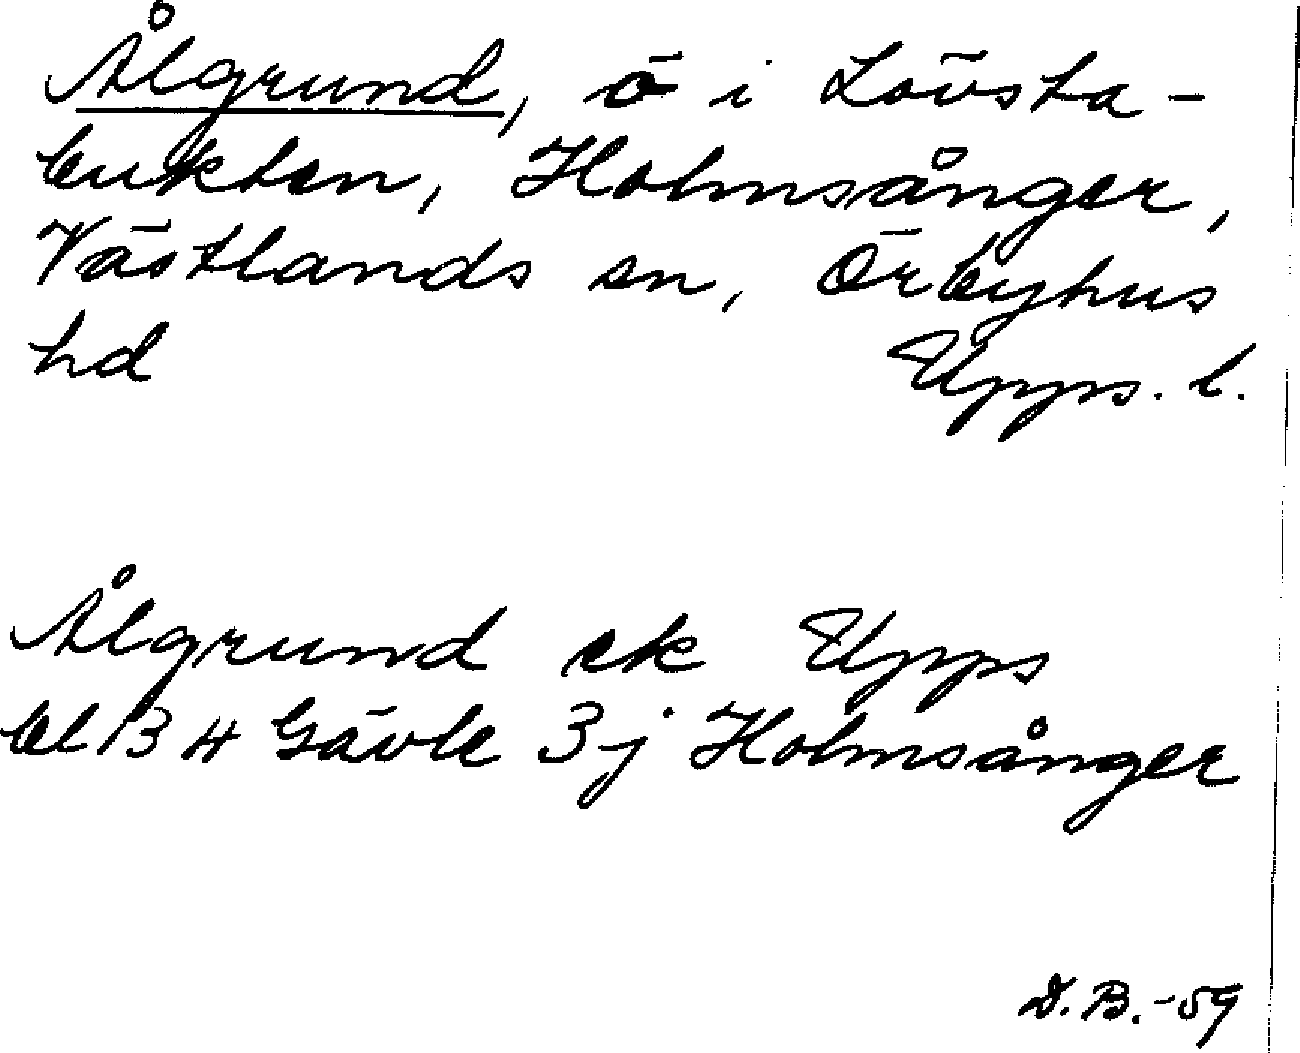 Ålgrund, ö i Lövsta-
bukten, Holmsånger,
Västlands sn, Örbyhus
hd Upps. l.
Ålgrund ek Upps
bl 13 H Gävle 3j Holmsånger
D.B.-59